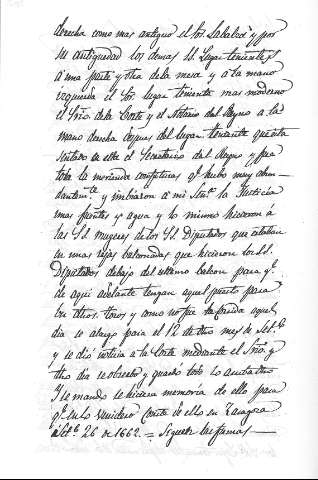 derecha como mas antiguo el Sor. Sabalza y por
su antiguedad los demas SS. Lugar tenientes
á una parte y otra de la mesa y á la mano
izquierda el Sor. lugar teniente mas moderno
el Srio. de la Corte y el Notario del Reyno a la
mano derecha despues del lugar teniente que esta
sentado en ella el Secretario del Reyno y fue
toda la merienda confituras qe. hubo muy abun
dantemte. y imbiaron á mi Sra. la Justicia
unas fuentes y agua y lo mismo hicieron á
las SS. mugeres de los SS. Diputados que estaban
en unas rejas balconadas que hicieron los SS.
Diputados debajo del ultimo balcon para qe.
de aqui adelante tengan aquel puesto para
los otros. toros y como no fue la corrida aquel
dia se alargo para el 12 de dho mes de Set.e
y se dió noticia á la Corte mediante el Srio. y
dho dia se observó y guardó todo lo susodicho
Y se mandó se hiciera memoria de ello para
qe. en lo venidero conste de ello en Zaragoza
á Set.e 26 de 1662. = Siguen las firmas —